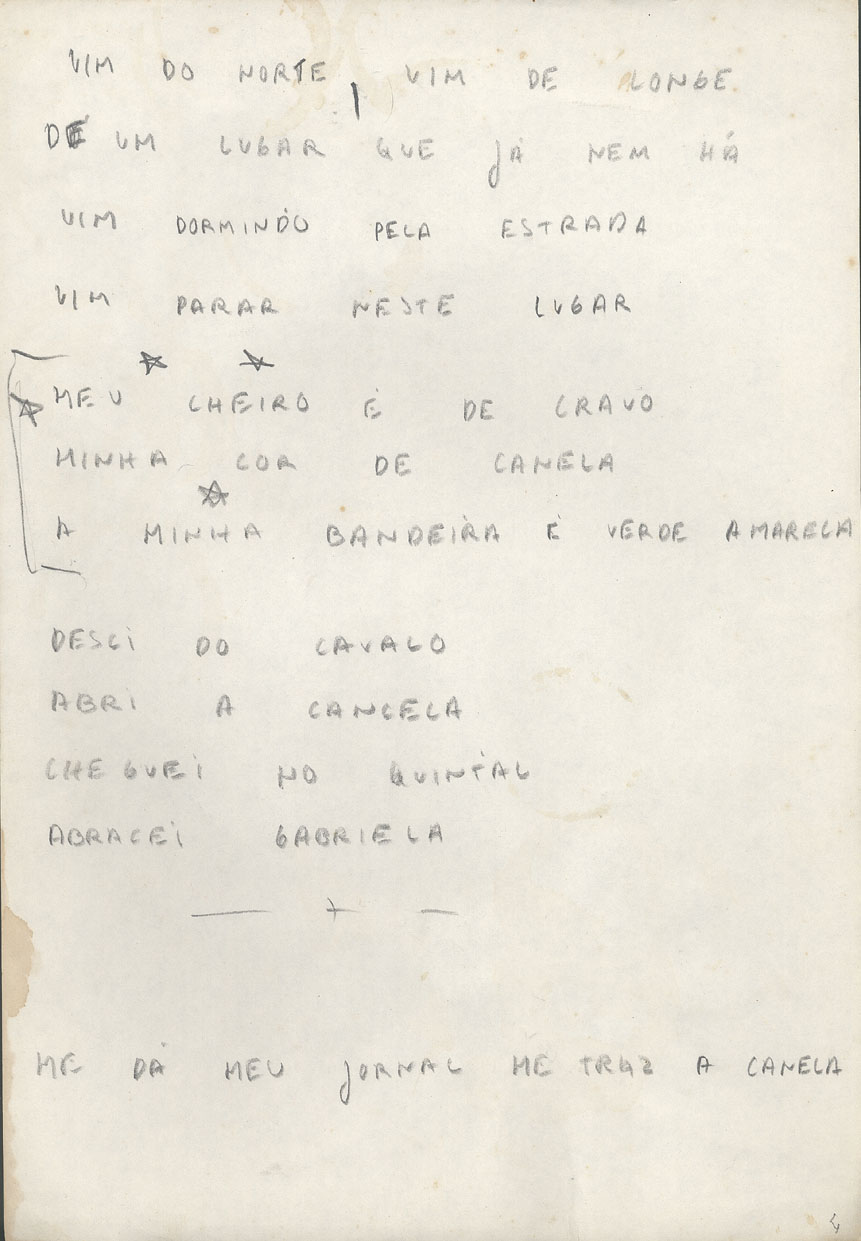 VIM DO NORTE, VIM DE LONGE
DE UM LUGAR QUE JÁ NEM HÁ
VIM DORMINDO PELA ESTRADA
VIM PARAR NESTE LUGAR
MEU CHEIRO É DE CRAVO
MINHA COR DE CANELA
A MINHA BANDEIRA É VERDE AMARELA
DESCI DO CAVALO
ABRI A CANCELA
CHEGUEI NO QUINTAL
ABRACEI GABRIELA
ME DÁ MEU JORNAL ME TRAZ A CANELA